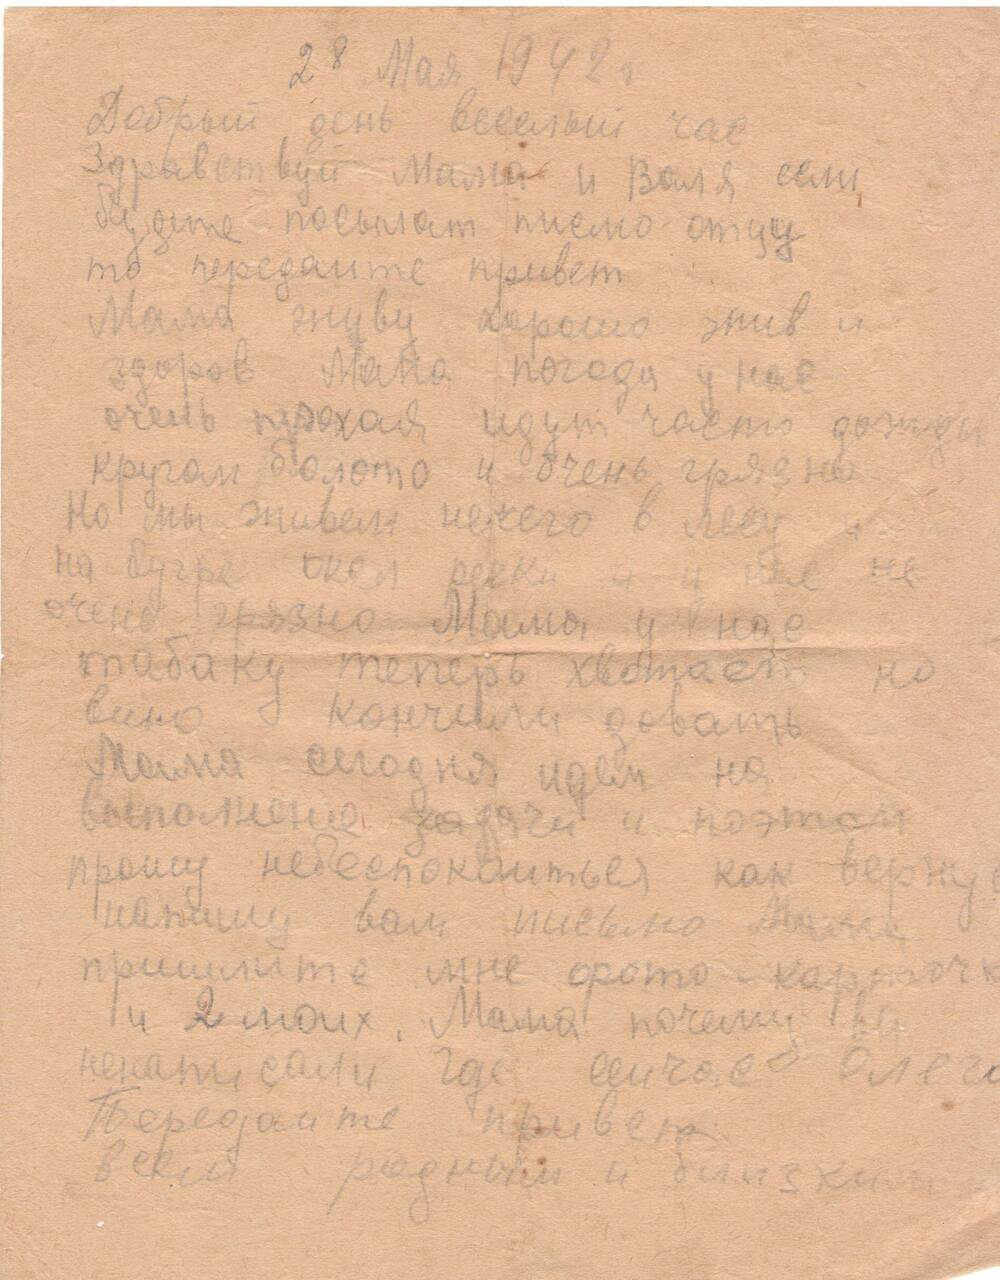 28 Мая 1942 г
Добрый день веселый час
Здравствуй Мама и Валя если
будите посылат писмо отцу
то передаите привет
Мама жуву харошо жив и
здоров Мама погода у нас
очень плохая идут часто дожды
кругом болото и очень грязно
Но мы живем нечего в лесу и
на бугре окол реки и у нас не
очень грязно Мама у нас
табаку теперь хватает но
вино кончили довать
Мама сегодня идем на
выполнение задачи и поэтом
прошу небеспокаиться как вернус
напишу вам письмо Мама
пришлите мне фото-карточк
и 2 моих. Мама почему вы
ненаписали где сеичас Олег
Передаите привет
всем родным и близким